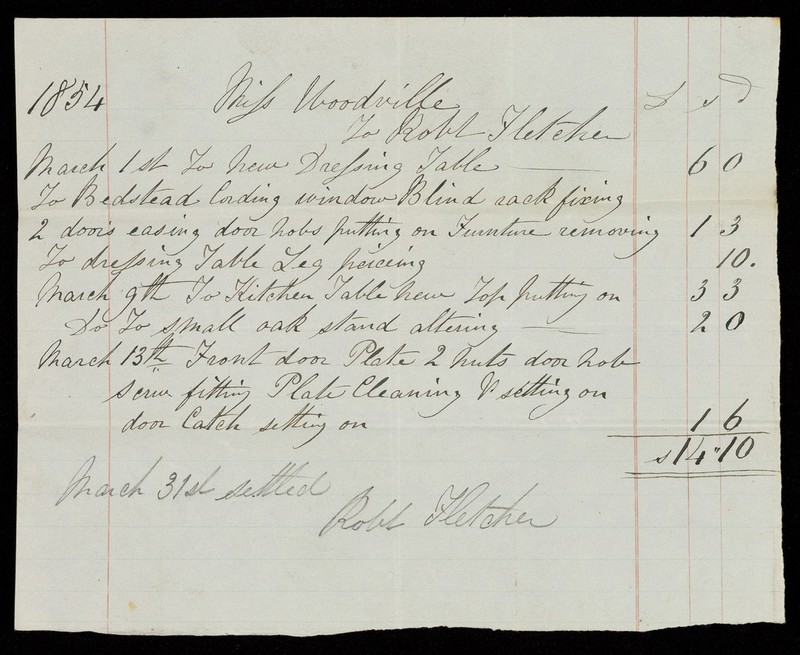 1854 Miss Woodville L s d
To Robt Fletcher
March 1st To New Dressing Table 6 0
To Bedstead Cording window Blind rack fixing
2 doors easing door nobs putting on Furnture removing 1 3
To dressing Table Leg peicing 10.
March 9th To Kitchen Table New Top putting on 3 3
Do To small oak stand altering 2 0
March 13th Front door Plate 2 nuts door nob
Screw fitting Plate Cleaning & setting on
door Catch setting on 1 6
s 14 " 10
March 31st settled
Robt Fletcher